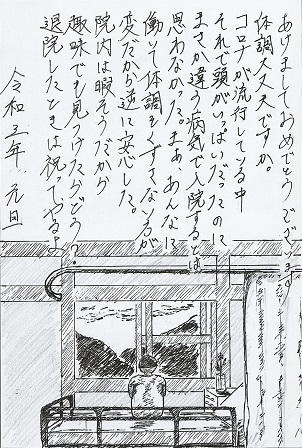 あけましておめでとうございます
体調大丈夫ですか。
コロナが流行している中
それで頭がいっぱいだったのに
まさか違う病気で入院するとは
思わなかった。まぁ、あんなに
働いて体調もくずさない方が
変だから逆に安心した。
院内は暇そうだから
趣味でも見つけたらどう?
退院したときは祝ってやるよ
令和三年 元旦